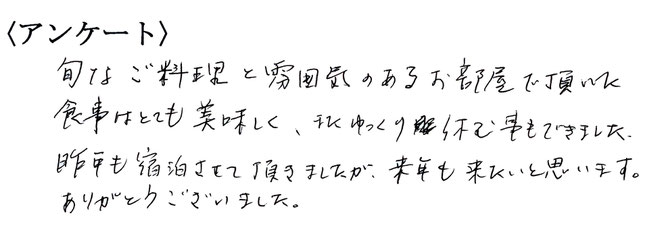 〈アンケート〉
旬なご料理と雰囲気のあるお部屋で頂いた
食事はとても美味しく、またゆっくり休む事もできました。
昨年も宿泊させて頂きましたが、来年も来たいと思います。
ありがとうございました。